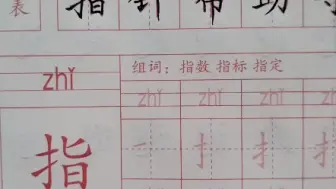 表 指 针 帮 助
zhǐ 组词：指数 指标 指定
zhǐ zhǐ zhǐ zhǐ
指